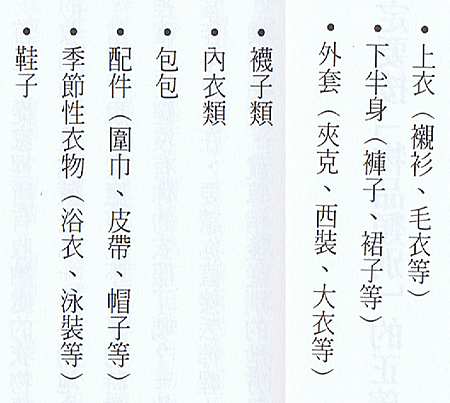 • 上衣（襯衫、毛衣等）
• 下半身（褲子、裙子等）
• 外套（夾克、西裝、大衣等）
• 襪子類
• 內衣類
• 包包
• 配件（圍巾、皮帶、帽子等）
• 季節性衣物（浴衣、泳裝等）
• 鞋子